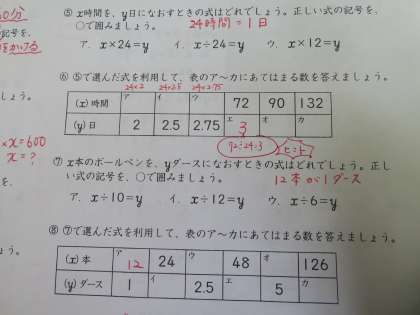 60分
をかける
しょう。
x=600
x=?
を、
ょう。
⑤ x時間を、y日になおすときの式はどれでしょう。正しい式の記号を、
○で囲みましょう。 24時間=1日
ア. x×24=y イ. x÷24=y ウ. x×12=y
⑥ ⑤で選んだ式を利用して、表のア〜カにあてはまる数を答えましょう。
24×2 24×2.5 24×2.75
(x)時間 ア イ ウ 72 90 132
(y)日 2 2.5 2.75 エ 3 オ カ
72÷24=3 ヒント
⑦ x本のボールペンを、yダースになおすときの式はどれでしょう。正し
い式の記号を、○で囲みましょう。 12本が1ダース
ア. x÷10=y イ. x÷12=y ウ. x÷6=y
⑧ ⑦で選んだ式を利用して、表のア〜カにあてはまる数を答えましょう。
(x)本 ア 12 24 ウ 48 オ 126
(y)ダース 1 イ 2.5 エ 5 カ